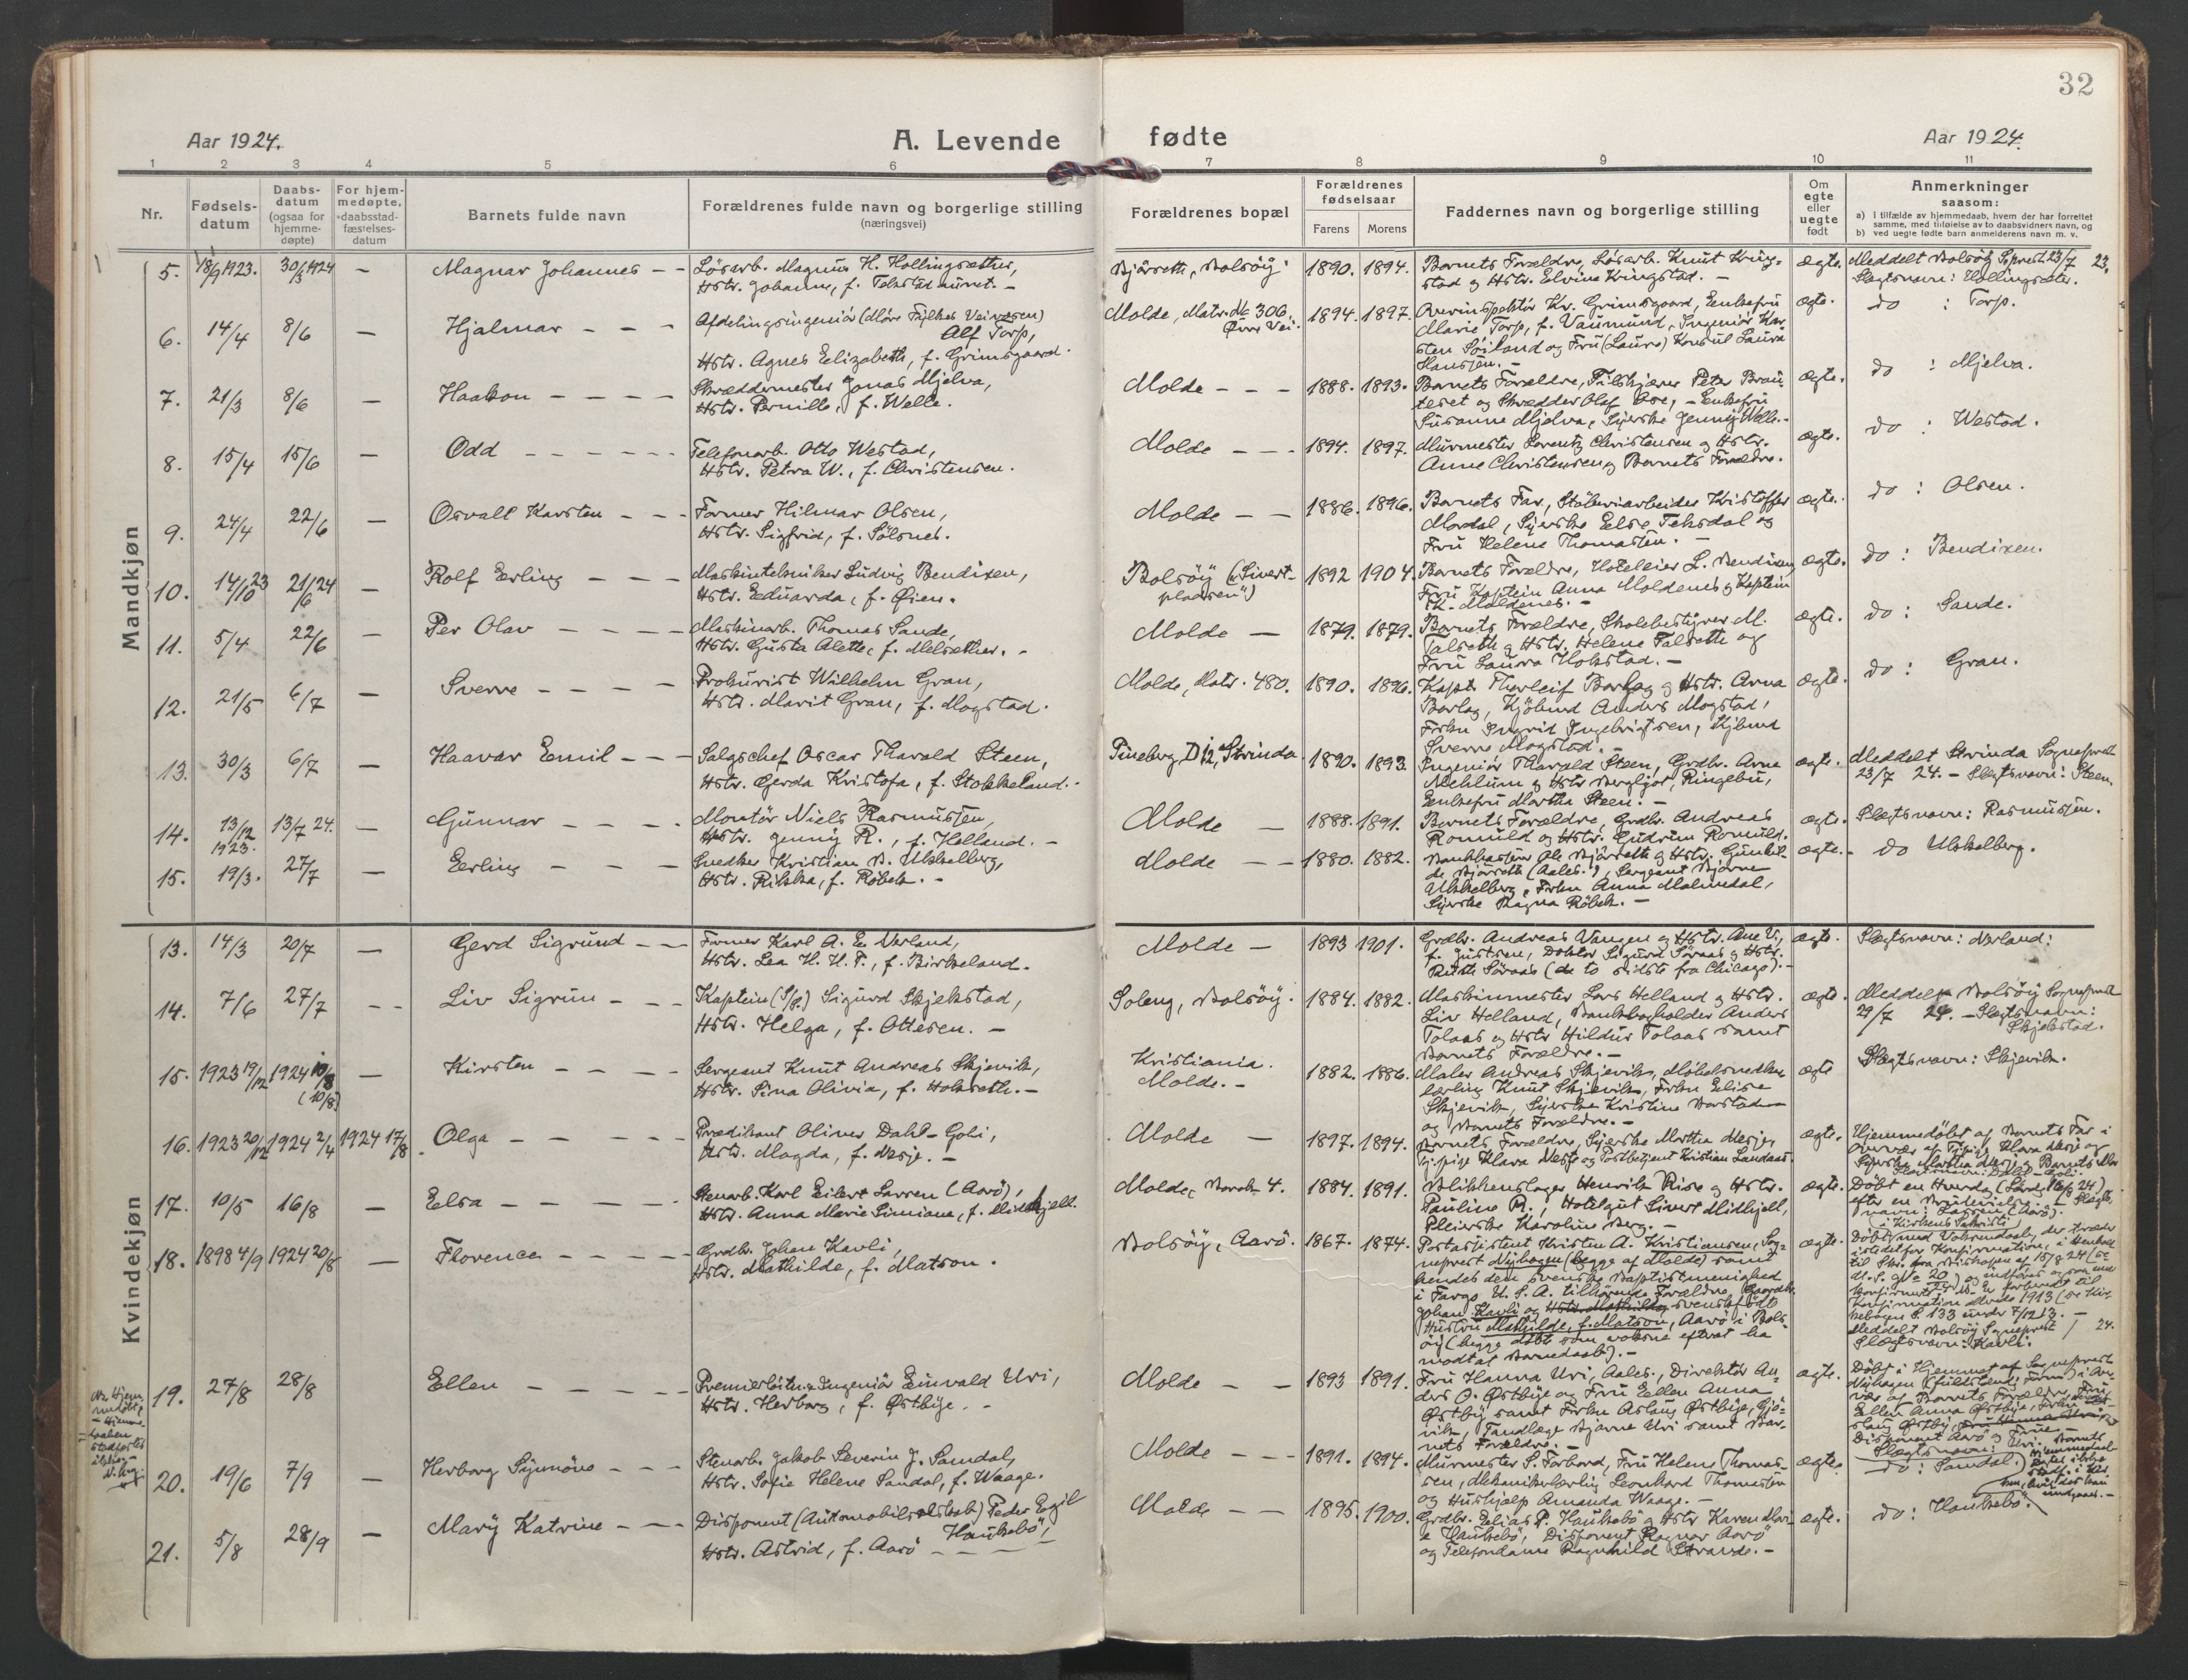 32
Aar 1924.
A. Levende fødte
Aar 1924.
1 2 3 4 5 6 7 8 9 10 11
Nr.
Fødsels-
datum
Daabs-
datum
(ogsaa for
hjemme-
døpte)
For hjem-
medøpte,
daabsstad-
fæstelses-
datum
Barnets fulde navn
Forældrenes fulde navn og borgerlige stilling
(næringsvei)
Forældrenes bopæl
Forældrenes
fødselsaar
Farens Morens
Faddernes navn og borgerlige stilling
Om
egte
eller
uegte
født
Anmerkninger
saasom:
a) i tilfælde av hjemmedaab, hvem der har forrettet
samme, med tilføielse av to daabsvidners navn, og
b) ved uegte fødte barn anmelderens navn m. v.
Mandkjøn
5. 18/9 1923. 30/3 1924 — Magnar Johannes — — Løsarb. Magnus H. Hollingsæther,
Hstr. Johanne, f.
Bjørseth, Bolsøy. 1890. 1894. Barnets Forældre, Løsarb. Knut Kring-
stad og Hstr. Elvine Kringstad. — ægte. Meddelt Bolsøy Sogneprest 23/7 23.
Slegtsnavn: Hollingsæter.
6. 14/4 8/6 — Hjalmar — — — Afdelingsingeniør (Møre Fylkes Veivæsen)
Alf Torp,
Hstr. Agnes Elizabeth, f. Grimsgaard.
Molde, Matr. № 306, Øvre Vei. 1894. 1897. Overinspektør Kr. Grimsgaard, Enkefru
Marie Torp, f. Vaumund, Ingeniør Kar-
sten Søiland og Fru (Laura) Konsul Laura
Hansen. — ægte. do : Torp.
7. 21/3 8/6 — Haakon — — — — Skræddermester Jonas Mjelva,
Hstr. Pernille, f. Welle.
Molde — — — 1888. 1893. Barnets Forældre, Tilskjærer Peter Brau-
teset og Skrædder Olaf Ose, — Enkefru
Susanne Mjelva, Syerske Jenny Welle. — ægte. do : Mjelva.
8. 15/4 15/6 — Odd — — — — — Telefonarb. Otto Westad,
Hstr. Petra W., f. Christensen.
Molde — — — 1894. 1897. Murmester Lorentz Christensen og Hstr.
Anne Christensen og Barnets Forældre. ægte. do : Westad.
9. 24/4 22/6 — Osvall Karsten — — — Former Hilmar Olsen,
Hstr. Sigfrid, f. Sølsnes.
Molde — — 1886. 1896. Barnets Far, Støberiarbeider Kristoffer
Mordal, Syerske Else Teksdal og
Fru Helene Thomassen. — ægte. do : Olsen.
10. 14/10 23 21/6 24 — Rolf Erling — — — Maskintekniker Ludvig Bendixen,
Hstr. Eduarda, f. Øien.
Bolsøy („Sivert-
pladsen“) 1892 1904. Barnets Forældre, Hoteleier L. Bendixen,
Fru Kaptein Anna Moldenes og Kaptein
K. Moldenes. — ægte. do : Bendixen.
11. 5/4 22/6 — Per Olav — — — — Maskinarb. Thomas Sande,
Hstr. Gusta Alette, f. Melsæther. —
Molde — 1879. 1879. Barnets Forældre, Skolebestyrer M.
Talseth og Hstr. Helene Talseth og
Fru Laura Hokstad. — ægte. do : Sande.
12. 21/5 6/7 — Sverre — — — — Prokurist Wilhelm Gran,
Hstr. Marit Gran, f. Mogstad.
Molde, Matr. 480. 1890. 1896. Kapt. Thorleif Borlag og Hstr. Arna
Borlag, Kjøbmd Anders Mogstad,
Frkn Ingrid Ingebrigtsen, Kjbmd
Sverre Mogstad. — ægte. do : Gran.
13. 30/3 6/7 — Haavar Emil — — — Salgschef Oscar Tharald Steen,
Hstr. Gerda Kristofa, f. Stokkeland.
Tineberg, D12, Strinda. 1890. 1893. Ingeniør Tharald Steen, Grdbr. Arne
Mehlum og Hstr Bergljot, Ringebu,
Enkefru Martha Steen. — ægte. Meddelt Strinda Sogneprest
23/7 24. — Slegtsnavn: Steen.
14. 13/12 1923. 13/7 24. — Gunnar — — — Montør Niels Rasmussen,
Hstr. Jenny R., f. Helland. —
Molde — 1888. 1891. Barnets Forældre, Grdbr. Andreas
Romuld og Hstr. Gudrun Romuld. ægte. Slegtsnavn: Rasmussen.
15. 19/3. 27/7 — Erling — — Snedker Kristian B. Ukkelberg,
Hstr. Rikka, f. Røbek. —
Molde — — 1880. 1882. Bankkasserer Ole Bjørseth og Hstr. Gunhil-
de Bjørseth (Aales.), Sergeant Bjarne
Ukkelberg, Frkn Anna Malmedal,
Syerske Ragna Røbek. — ægte. — do Ukkelberg.
Kvindekjøn
13. 14/3 20/7 — Gerd Sigrund — — Former Karl A. E. Nerland,
Hstr. Lea H. H. T., f. Birkeland.
Molde — 1893 1901. Grdbr. Andreas Vangen og Hstr. Ane V.,
f. Justsen, Doktor Sigurd Søraas og Hstr.
Ruth Søraas (de to sidste fra Chicago). — ægte. Slegtsnavn: Nerland.
14. 7/6 27/7 — Liv Sigrun — — Kaptein (S/p.) Sigurd Skjelstad,
Hstr. Helga, f. Ottesen. —
Soleng, Bolsøy. 1884. 1882. Maskinmester Lars Helland og Hstr.
Liv Helland, Bankbogholder Anders
Tolaas og Hstr Hildur Tolaas samt
Barnets Forældre. — ægte. Meddelt Bolsøy Sogneprest
29/7 24. — Slegtsnavn:
Skjelstad.
15. 1923 19/12 1924 10/8 (10/8) — Kirsten — — — Sergeant Knut Andreas Skjevik,
Hstr. Tina Olivia, f. Hokseth. —
Kristiania.
Molde. — 1882. 1886. Maler Andreas Skjevik, Møbelsnedker
lærling Knut Skjevik, Frkn Elise
Skjevik, Syerske Kristine Barstad
og Barnets Forældre. — ægte Slegtsnavn: Skjevik.
16. 1923 20/12 1924 2/4 1924 17/8 Olga — — — — Prædikant Oliver Dahl-Goli,
Hstr. Magda, f. Nesje. —
Molde — 1897. 1894. Barnets Forældre, Syerske Martha Nesje,
Sypige Klara Nesje og Postbetjent Kristian Landaas. ægte. Hjemmedøbt af Barnets Far i
Overvær af Sypige Klara Nesje og
Syerske Martha Nesje og Barnets Mor
Slegtsnavn: Dahl-Goli.
17. 10/5 16/8 — Elsa — — — — Stenarb. Karl Eilert Larsen (Aarø),
Hstr. Anna Marie Simiane, f. Midthjell.
Molde, Barak 4. 1884. 1891. Blikkenslager Henrik Rise og Hstr.
Pauline R., Hotelgut Sivert Midhjell,
Pleierske Karoline Berg. — ægte. Døbt en Hverdag (Lørdg 16/8 24)
efter en Brudevielse. — Slegts-
navn: Larsen (Aarø).
18. 1898 4/9 1924 20/8 — Florence — — — — — Grdbr. Johan Kavli,
Hstr. Mathilde, f. Matson.
Bolsøy, Aarø. 1867. 1874. Postassistent Kristen A. Kristiansen, Sog-
neprest Nyhagen (begge af Molde) samt
hendes den svenske Baptistmenighed
i Fargo U. S. A. tilhørende Forældre, Gaardbr.
Johan Kavli og svenskfødte
Hustru Mathilde, f. Matson, Aarø i Bols-
øy (begge døbt som voksne efterat ha
modtat Barnedaab). — ægte. i Kirkens Sakristi
Døbt med Voksendaab, der træder
istedetfor Konfirmation, i Henhold
til Skr. fra Biskopen af 15/8 24
Konfirmation allerede 1913
kebogen S. 133 under 7/12 13. —
Meddelt Bolsøy Sogneprest / 24.
Slegtsnavn: Kavli.
19. 27/8 28/8 Ellen — — — — Premierløitn. & Ingeniør Einvald Uri,
Hstr. Herborg, f. Østbye. —
Molde — — 1893 1891. Fru Hanna Uri, Aales., Direktør An-
ders O. Østbye og Fru Ellen Anna
Østby samt Frkn Aslaug Østbye, Gjø-
vik, Tandlæge Bjarne Uri samt Bar-
nets Forældre. — ægte. Døbt i Hjemmet af Sogneprest
Nyhagen (fuldstændig Form) i Over-
vær af Barnets Forældre, Fru
Ellen Anna Østbye, Frkn As-
laug Østby,
Disponent Aarø og Frue. —
Slegtsnavn: Uri.
20. 19/6 7/9 — Herborg Synnøve — — — Stenarb. Jakob Severin J. Sandal,
Hstr. Sofie Helene Sandal, f. Waage.
Molde — — — 1891. 1894. Murmester S. Forbord, Fru Helene Thomas-
sen, Mekanikerlærling Leonhard Thomassen
og Hushjælp Amanda Waage. — ægte. — do : Sandal.
21. 5/8 28/9 — Mary Katrine — — — Disponent (Automobilselskab) Peder Egil
Haukebø,
Hstr. Astrid, f. Aarø — — — —
Molde — — 1895. 1900. Grdbr. Elias P. Haukebø og Hstr Karen Mari-
e Haukebø, Disponent Ragnar Aarø
og Telefondame Ragnhild Strande. — ægte. do : Haukebø.